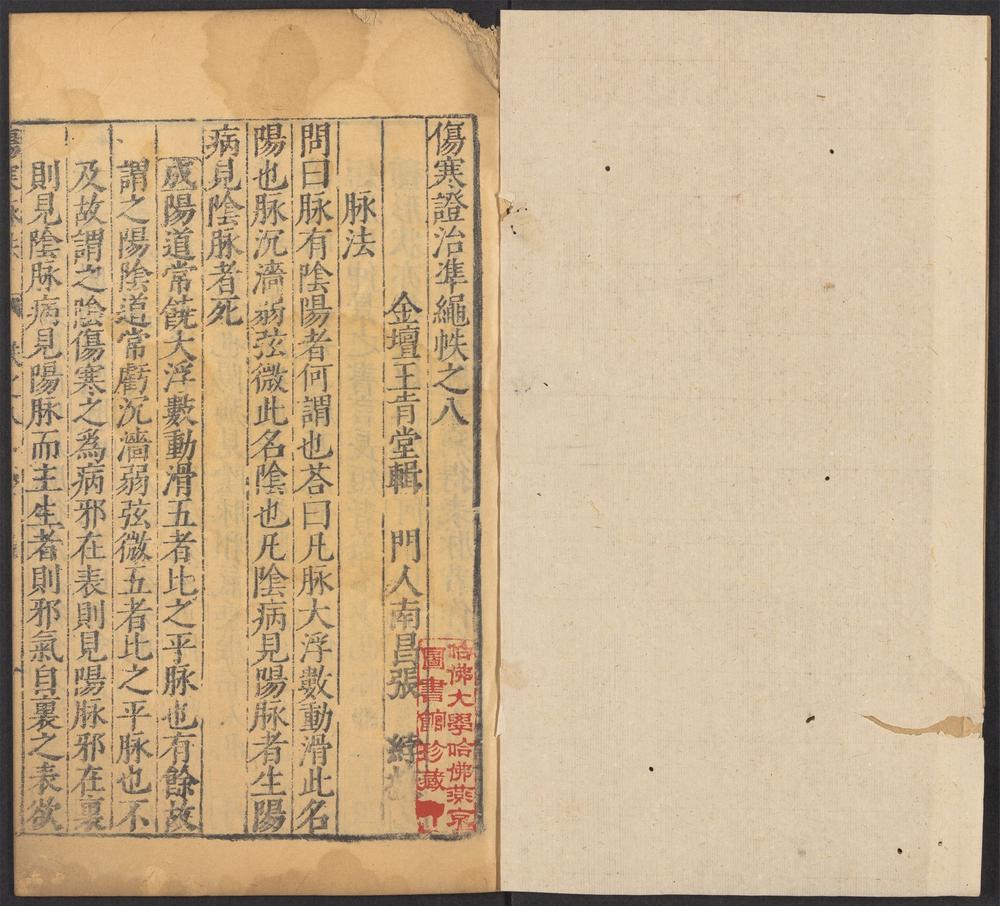 傷寒證治準繩帙之八
金壇王肯堂輯　門人南昌張
脉法
問曰脉有陰陽者何謂也荅曰凡脉大浮數動滑此名
陽也脉沉濇弱弦微此名陰也凡陰病見陽脉者生陽
病見陰脉者死
成陽道常饒大浮數動滑五者比之平脉也有餘故
謂之陽陰道常虧沉濇弱弦微五者比之平脉也不
及故謂之陰傷寒之爲病邪在表則見陽脉邪在裏
則見陰脉病見陽脉而主生者則邪氣自裏之表欲
哈佛大學哈佛燕京
圖書館珍藏印